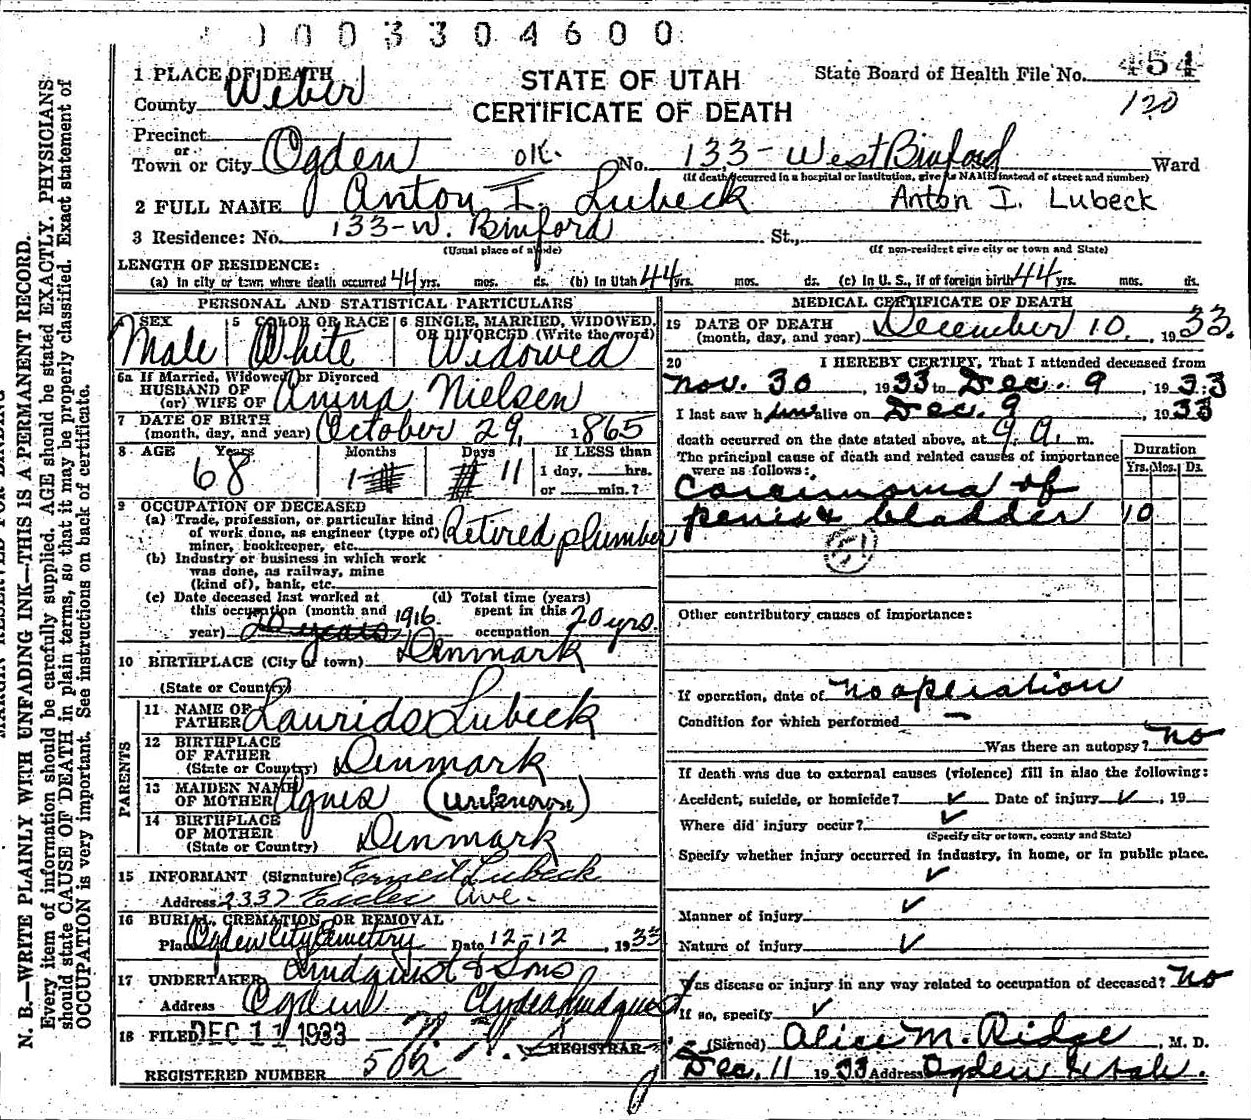 0 0 0 3 3 0 4 6 0 0
1 PLACE OF DEATH
County Weber
STATE OF UTAH
CERTIFICATE OF DEATH
State Board of Health File No. 454
120
Precinct
or
Town or City Ogden OK. No. 133- West Binford Ward
(If death occurred in a hospital or institution, give its NAME instead of street and number)
2 FULL NAME Anton I. Lubeck Anton I. Lubeck
3 Residence: No. 133-W. Binford St.,
(Usual place of abode) (If non-resident give city or town and State)
LENGTH OF RESIDENCE:
(a) In city or town where death occurred 44 yrs. mos. ds. (b) In Utah 44 yrs. mos. ds. (c) In U. S., if of foreign birth 44 yrs. mos. ds.
PERSONAL AND STATISTICAL PARTICULARS
SEX Male
5 COLOR OR RACE White
6 SINGLE, MARRIED, WIDOWED, OR DIVORCED (Write the word) Widowed
6a If Married, Widowed, or Divorced
HUSBAND OF
(or) WIFE OF Anina Nielsen
7 DATE OF BIRTH
(month, day, and year) October 29, 1865
8 AGE Years 68 Months 1 Days 11 If LESS than
1 day, hrs.
or min.?
9 OCCUPATION OF DECEASED
(a) Trade, profession, or particular kind
of work done, as engineer (type of)
miner, bookkeeper, etc. Retired plumber
(b) Industry or business in which work
was done, as railway, mine
(kind of), bank, etc.
(c) Date deceased last worked at
this occupation (month and
year) 20 years 1916
(d) Total time (years)
spent in this
occupation 20 yrs.
10 BIRTHPLACE (City or town) Denmark
(State or Country)
PARENTS
11 NAME OF
FATHER Laurids Lubeck
12 BIRTHPLACE
OF FATHER
(State or Country) Denmark
13 MAIDEN NAME
OF MOTHER Agnes (unknown)
14 BIRTHPLACE
OF MOTHER
(State or Country) Denmark
15 INFORMANT (Signature) Ernest Lubeck
Address 2337 Eccles Ave.
16 BURIAL, CREMATION, OR REMOVAL
Place Ogden City Cemetery Date 12-12, 1933
17 UNDERTAKER Lindquist & Sons
Address Ogden Clyde Lindquist
18 FILED DEC 11 1933
REGISTRAR
REGISTERED NUMBER 502
MEDICAL CERTIFICATE OF DEATH
19 DATE OF DEATH
(month, day, and year) December 10, 1933.
20 I HEREBY CERTIFY, That I attended deceased from
Nov. 30, 1933 to Dec. 9, 1933
I last saw him alive on Dec. 9, 1933
death occurred on the date stated above, at 9 A. m.
The principal cause of death and related causes of importance
were as follows:
Duration
Yrs. Mos. Ds.
Carcinoma of
penis & bladder 10
51
Other contributory causes of importance:
If operation, date of no operation
Condition for which performed —
Was there an autopsy? no
If death was due to external causes (violence) fill in also the following:
Accident, suicide, or homicide? ✓ Date of injury ✓, 19
Where did injury occur? ✓
(Specify city or town, county and State)
Specify whether injury occurred in industry, in home, or in public place.
✓
Manner of injury ✓
Nature of injury ✓
Was disease or injury in any way related to occupation of deceased? no
If so, specify ✓
(Signed) Alice M. Ridge, M. D.
Dec. 11 1933 Address Ogden Utah.
N. B.—WRITE PLAINLY WITH UNFADING INK—THIS IS A PERMANENT RECORD.
Every item of information should be carefully supplied. AGE should be stated EXACTLY. PHYSICIANS
should state CAUSE OF DEATH in plain terms, so that it may be properly classified. Exact statement of
OCCUPATION is very important. See instructions on back of certificate.